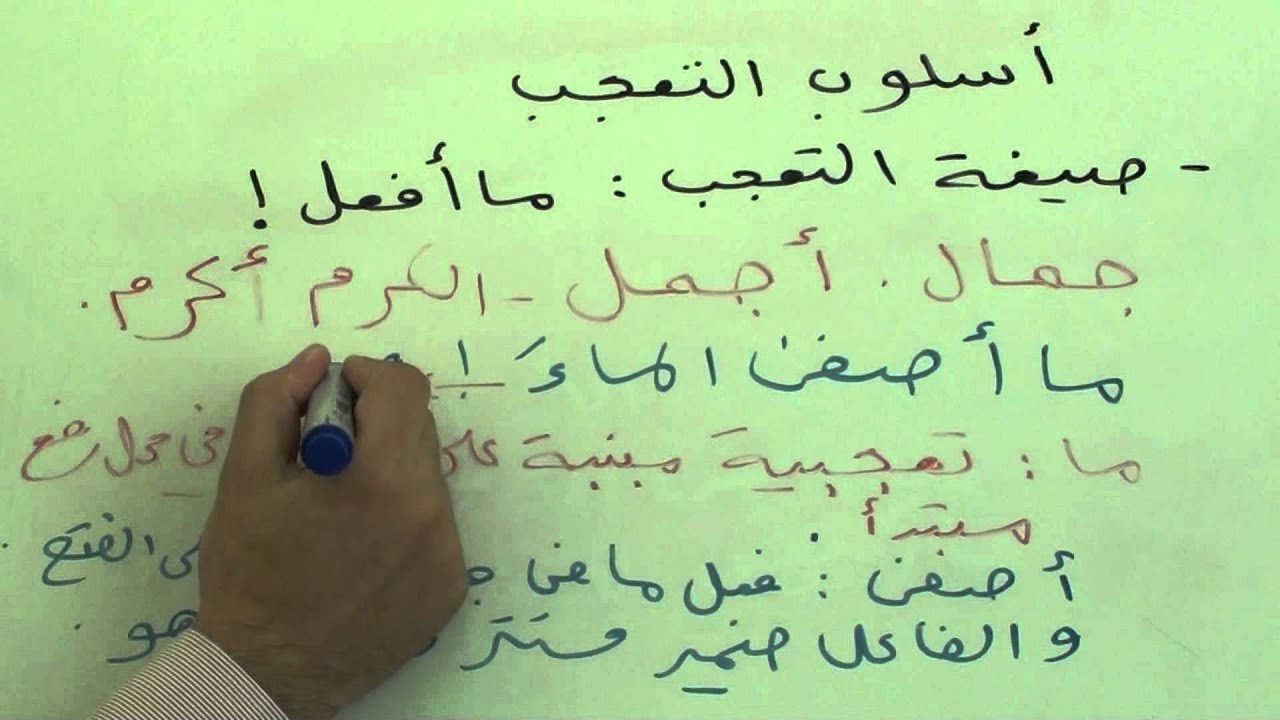 أسلوب التعجب
- صيغة التعجب : ما أفعل !
جمال . أجمل - الكرم أكرم .
ما أصفى الماءَ !
ما : تعجبية مبنية على في محل رفع
مبتدأ .
أصفى : فعل ماضى الفتح .
والفاعل ضمير مستتر هو .